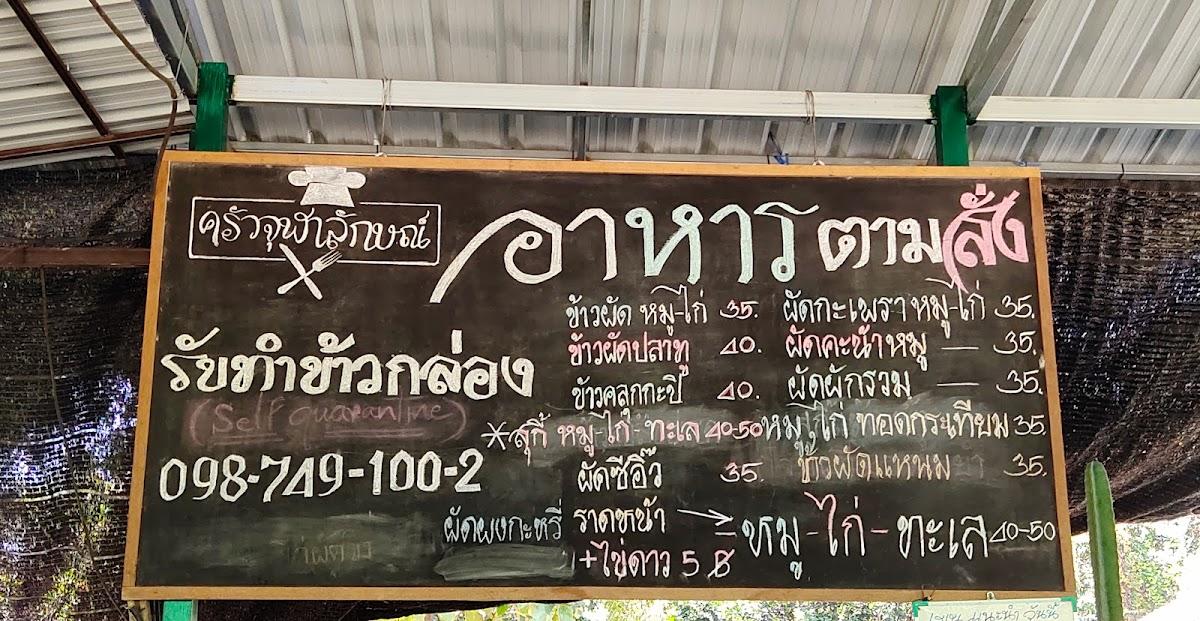 ครัวจุฬาลักษณ์
อาหารตามสั่ง
รับทำข้าวกล่อง
(Self quarantine)
098-749-100-2
ข้าวผัด หมู-ไก่ 35.
ข้าวผัดปลาทู 40.
ข้าวคลุกกะปิ 40.
*สุกี้ หมู-ไก่-ทะเล 40-50
ผัดซีอิ๊ว 35.
ผัดผงกะหรี่ ราดหน้า → หมู-ไก่-ทะเล 40-50
+ไข่ดาว 5 ฿
ผัดกะเพราหมู-ไก่ 35.
ผัดคะน้าหมู — 35.
ผัดผักรวม — 35.
หมู,ไก่ ทอดกระเทียม 35.
ข้าวผัดแหนม 35.
แนะนำ วันนี้